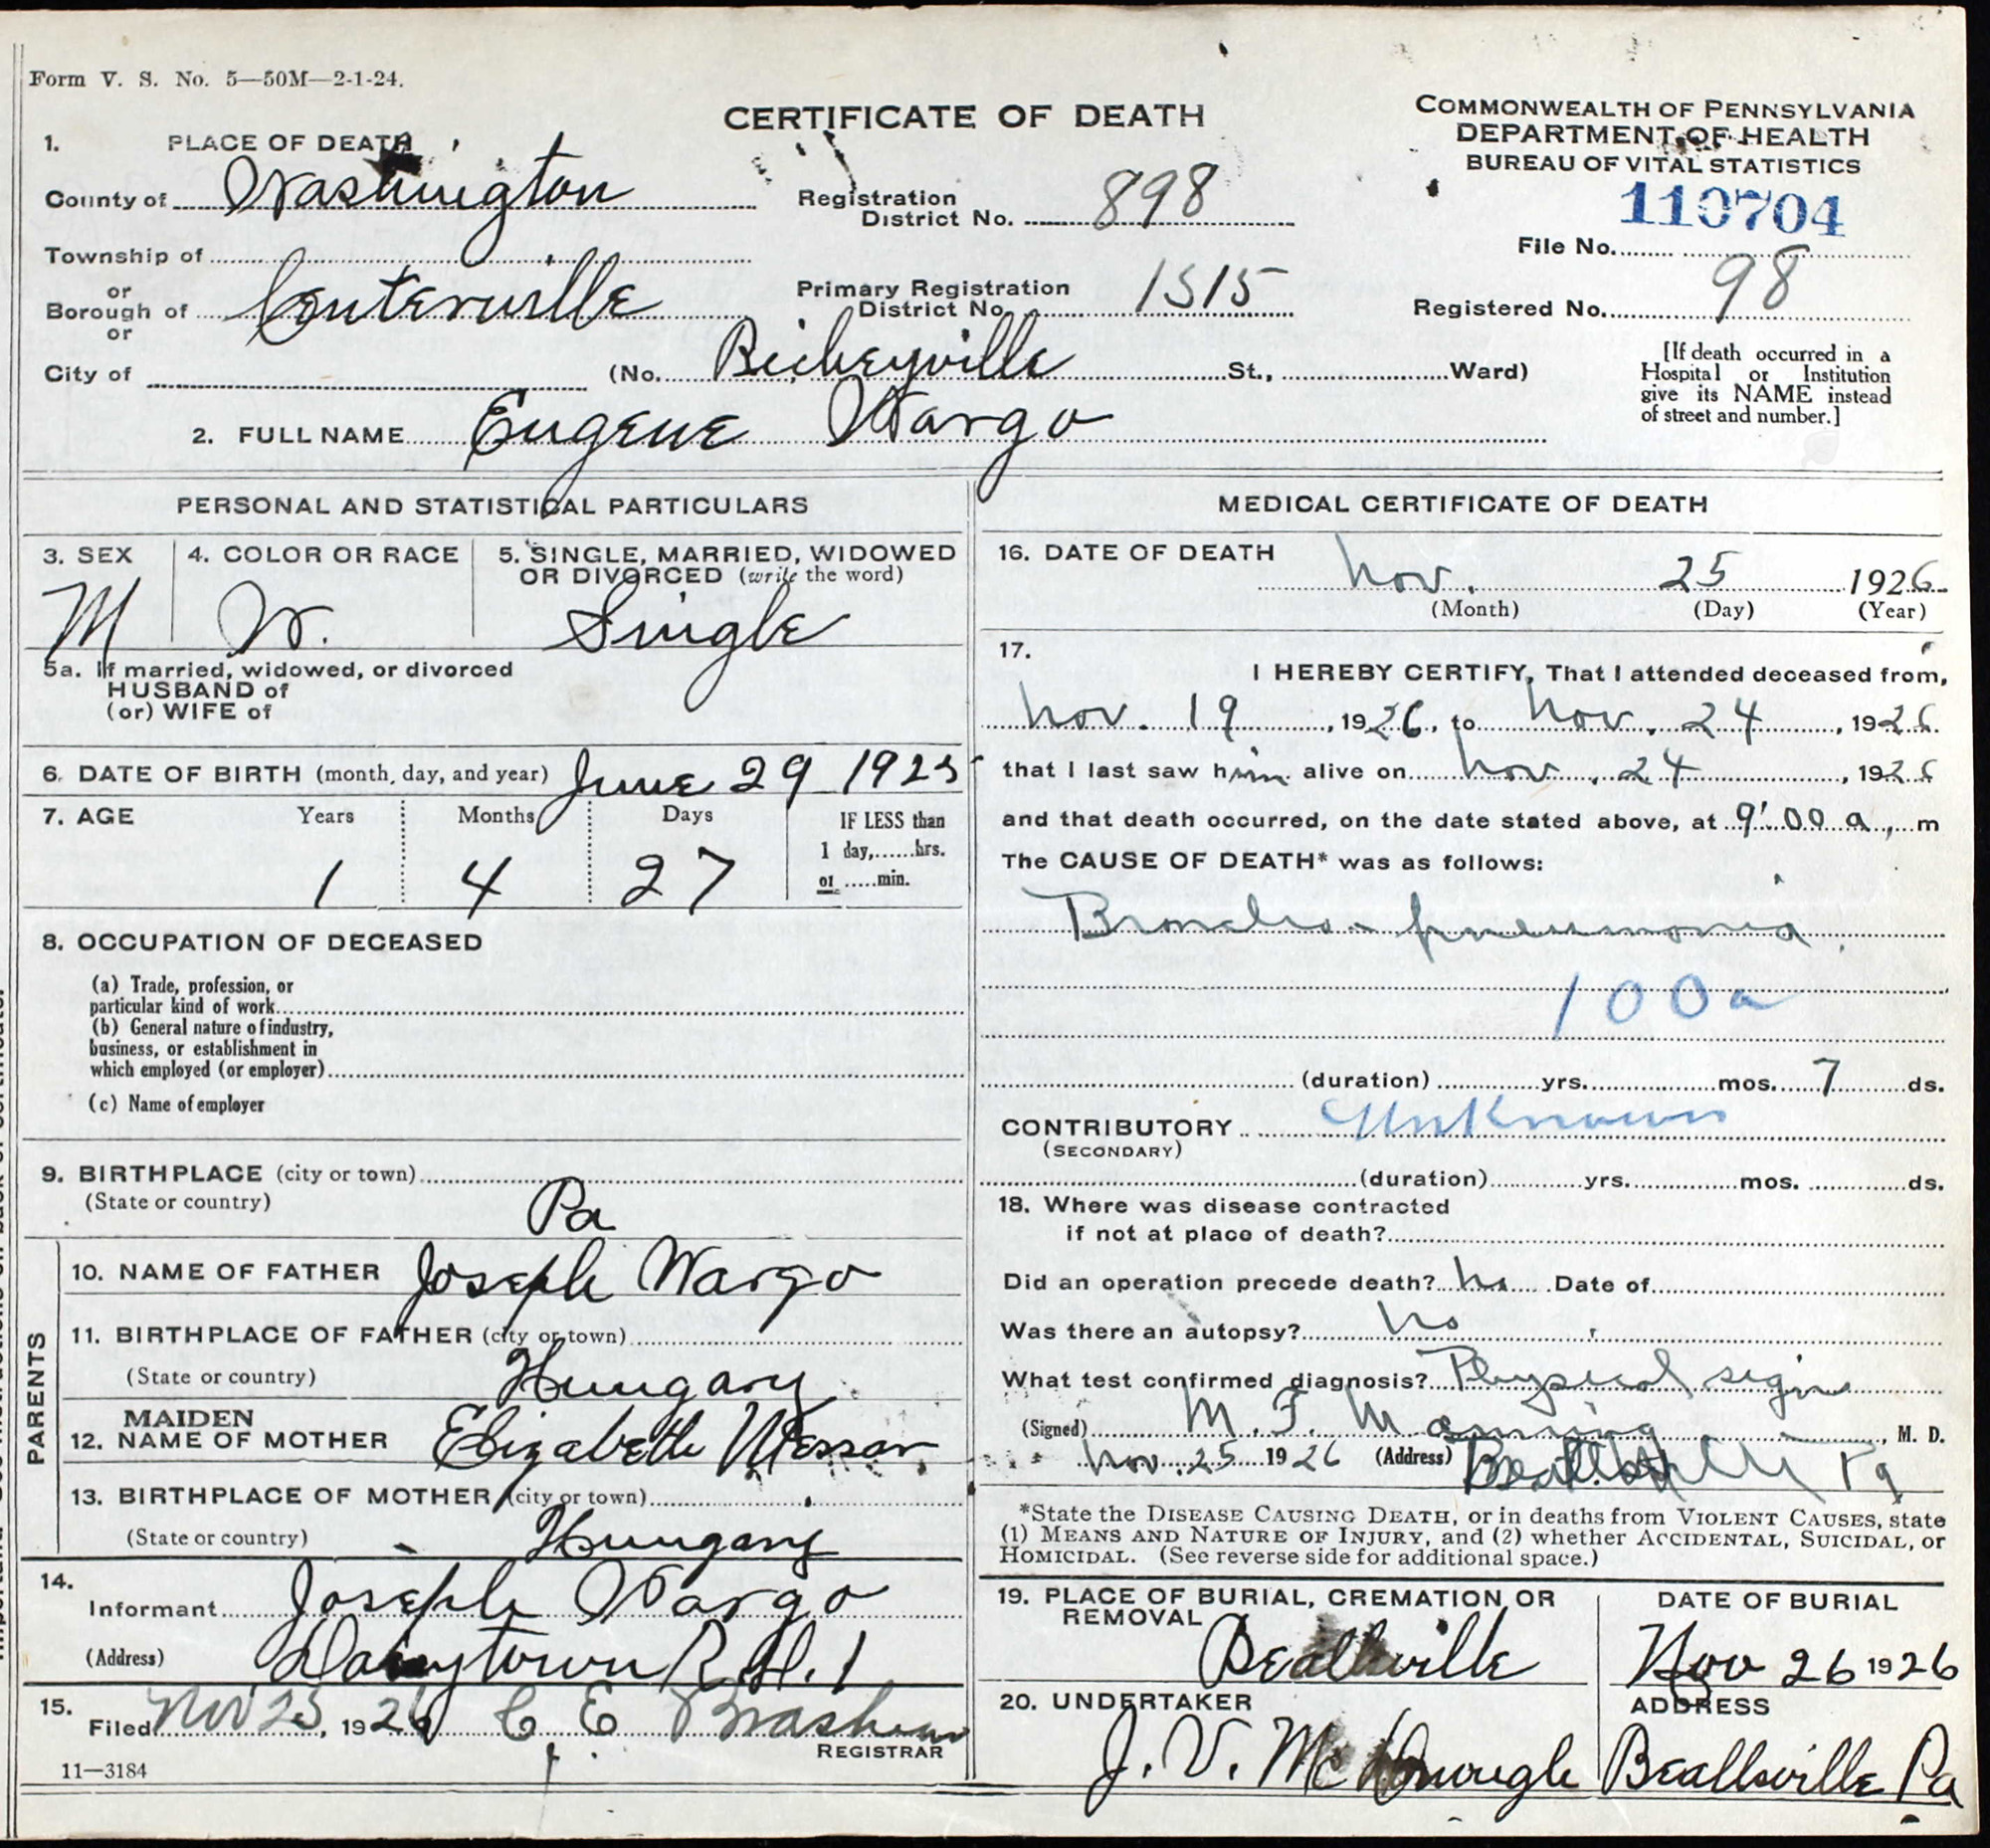 Form V. S. No. 5—50M—2-1-24.
CERTIFICATE OF DEATH
COMMONWEALTH OF PENNSYLVANIA
DEPARTMENT OF HEALTH
BUREAU OF VITAL STATISTICS
1. PLACE OF DEATH
County of Washington
Township of
or
Borough of Centerville
or
City of
Registration
District No. 898
Primary Registration
District No. 1515
(No. Richeyville St., Ward)
110704
File No.
Registered No. 98
[If death occurred in a
Hospital or Institution
give its NAME instead
of street and number.]
2. FULL NAME Eugene Wargo
PERSONAL AND STATISTICAL PARTICULARS
3. SEX
M
4. COLOR OR RACE
W.
5. SINGLE, MARRIED, WIDOWED
OR DIVORCED (write the word)
Single
5a. If married, widowed, or divorced
HUSBAND of
(or) WIFE of
6. DATE OF BIRTH (month, day, and year) June 29 1925
7. AGE Years Months Days
1 4 27
IF LESS than
1 day,......hrs.
or .....min.
8. OCCUPATION OF DECEASED
(a) Trade, profession, or
particular kind of work
(b) General nature of industry,
business, or establishment in
which employed (or employer)
(c) Name of employer
9. BIRTHPLACE (city or town)
(State or country) Pa
PARENTS
10. NAME OF FATHER Joseph Wargo
11. BIRTHPLACE OF FATHER (city or town)
(State or country) Hungary
12. MAIDEN NAME OF MOTHER Elizabeth Messar
13. BIRTHPLACE OF MOTHER (city or town)
(State or country) Hungary
14.
Informant Joseph Wargo
(Address) Daisytown R.D. 1
15.
Filed Nov 25, 1926 C E Brashear
REGISTRAR
11—3184
MEDICAL CERTIFICATE OF DEATH
16. DATE OF DEATH
Nov. 25 1926
(Month) (Day) (Year)
17.
I HEREBY CERTIFY, That I attended deceased from,
Nov. 19, 1926, to Nov. 24, 1926.
that I last saw him alive on Nov. 24, 1926
and that death occurred, on the date stated above, at 9:00 a., m
The CAUSE OF DEATH* was as follows:
Broncho-pneumonia
100a
(duration) yrs. mos. 7 ds.
CONTRIBUTORY Unknown
(SECONDARY)
(duration) yrs. mos. ds.
18. Where was disease contracted
if not at place of death?
Did an operation precede death? No Date of
Was there an autopsy? No
What test confirmed diagnosis? Physical signs
(Signed) M. F. Manning, M. D.
Nov. 25 1926 (Address) Beallsville Pa
*State the DISEASE CAUSING DEATH, or in deaths from VIOLENT CAUSES, state
(1) MEANS AND NATURE OF INJURY, and (2) whether ACCIDENTAL, SUICIDAL, or
HOMICIDAL. (See reverse side for additional space.)
19. PLACE OF BURIAL, CREMATION, OR
REMOVAL
Beallsville
DATE OF BURIAL
Nov 26 1926
20. UNDERTAKER
J. V. McDonough
ADDRESS
Beallsville Pa